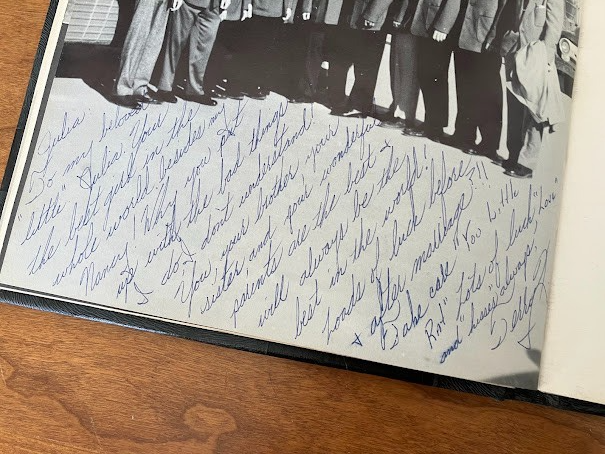 Julia
"To my beloved
little" Julia. Your
the best girl in the
whole world besides my
Nancy! Why you put
up with the bad things
I do I don't understand
You, your brother, your
sister, and your wonderful
parents are the best &
will always be the
best in the world.
loads of luck before
& after marriage!!!
Take care "You Little
Rat" Lots of luck, "Love"
and kisses "always,"